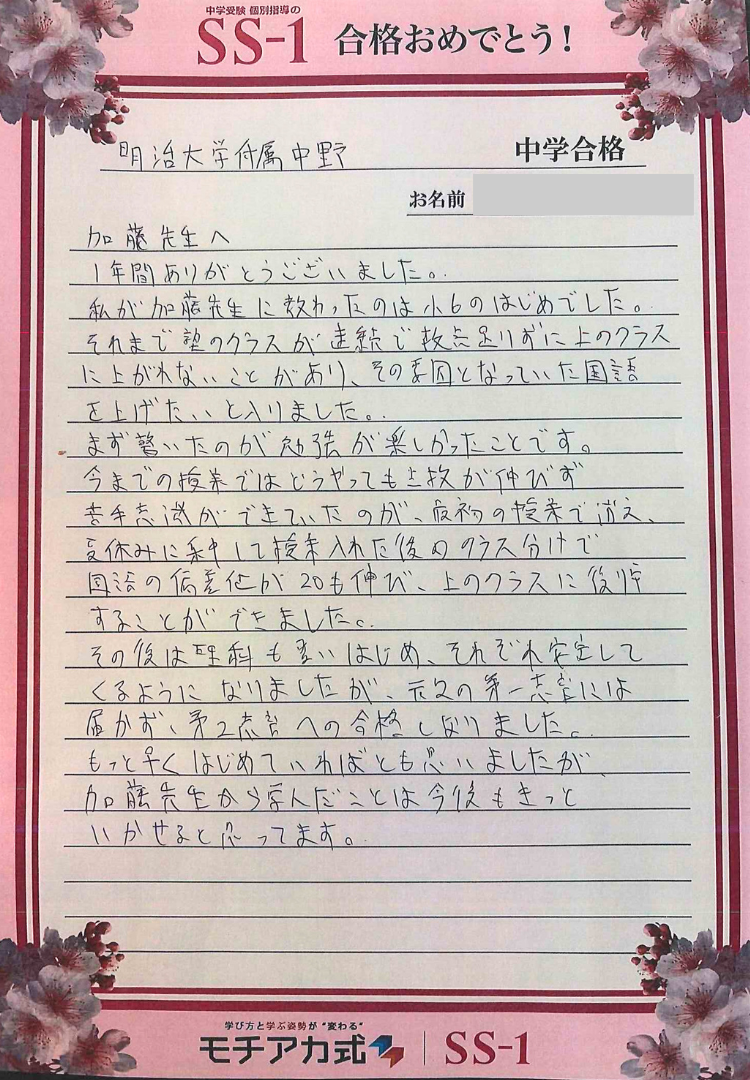 中学受験 個別指導の
SS-1 合格おめでとう!
明治大学付属中野 中学合格
お名前
加藤先生へ
1年間ありがとうございました。
私が加藤先生に教わったのは小6のはじめでした。
それまで塾のクラスが連続で数点足りずに上のクラス
に上がれないことがあり、その要因となっていた国語
を上げたいと入りました。
まず驚いたのが勉強が楽しかったことです。
今までの授業ではどうやっても点数が伸びず
苦手意識ができていたのが、最初の授業で消え、
夏休みに集中して授業入れた後のクラス分けで
国語の偏差値が20も伸び、上のクラスに復帰
することができました。
その後は理科も習いはじめ、それぞれ安定して
くるようになりましたが、元々の第一志望には
届かず、第2志望への合格となりました。
もっと早くはじめていればとも思いましたが、
加藤先生から学んだことは今後もきっと
いかせると思ってます。
学び方と学ぶ姿勢が"変わる"
モチアカ式 SS-1